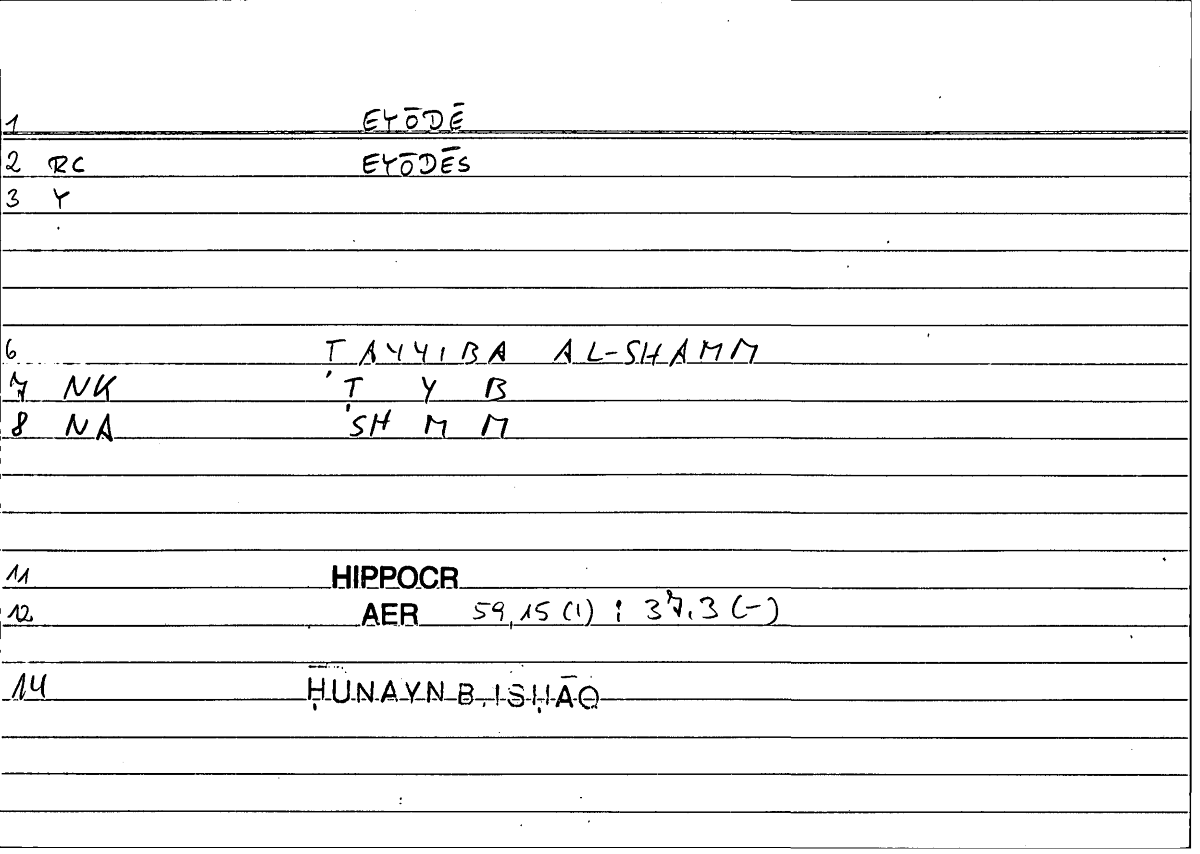 1 EYŌDĒ
2 RC EYŌDĒS
3 Y
6 ṬAYYIBA AL-SHAMM
7 NK Ṭ Y B
8 NA SH M M
11 HIPPOCR
12 AER 59,15 (1) ; 37.3 (-)
14 ḤUNAYN B. ISḤĀQ